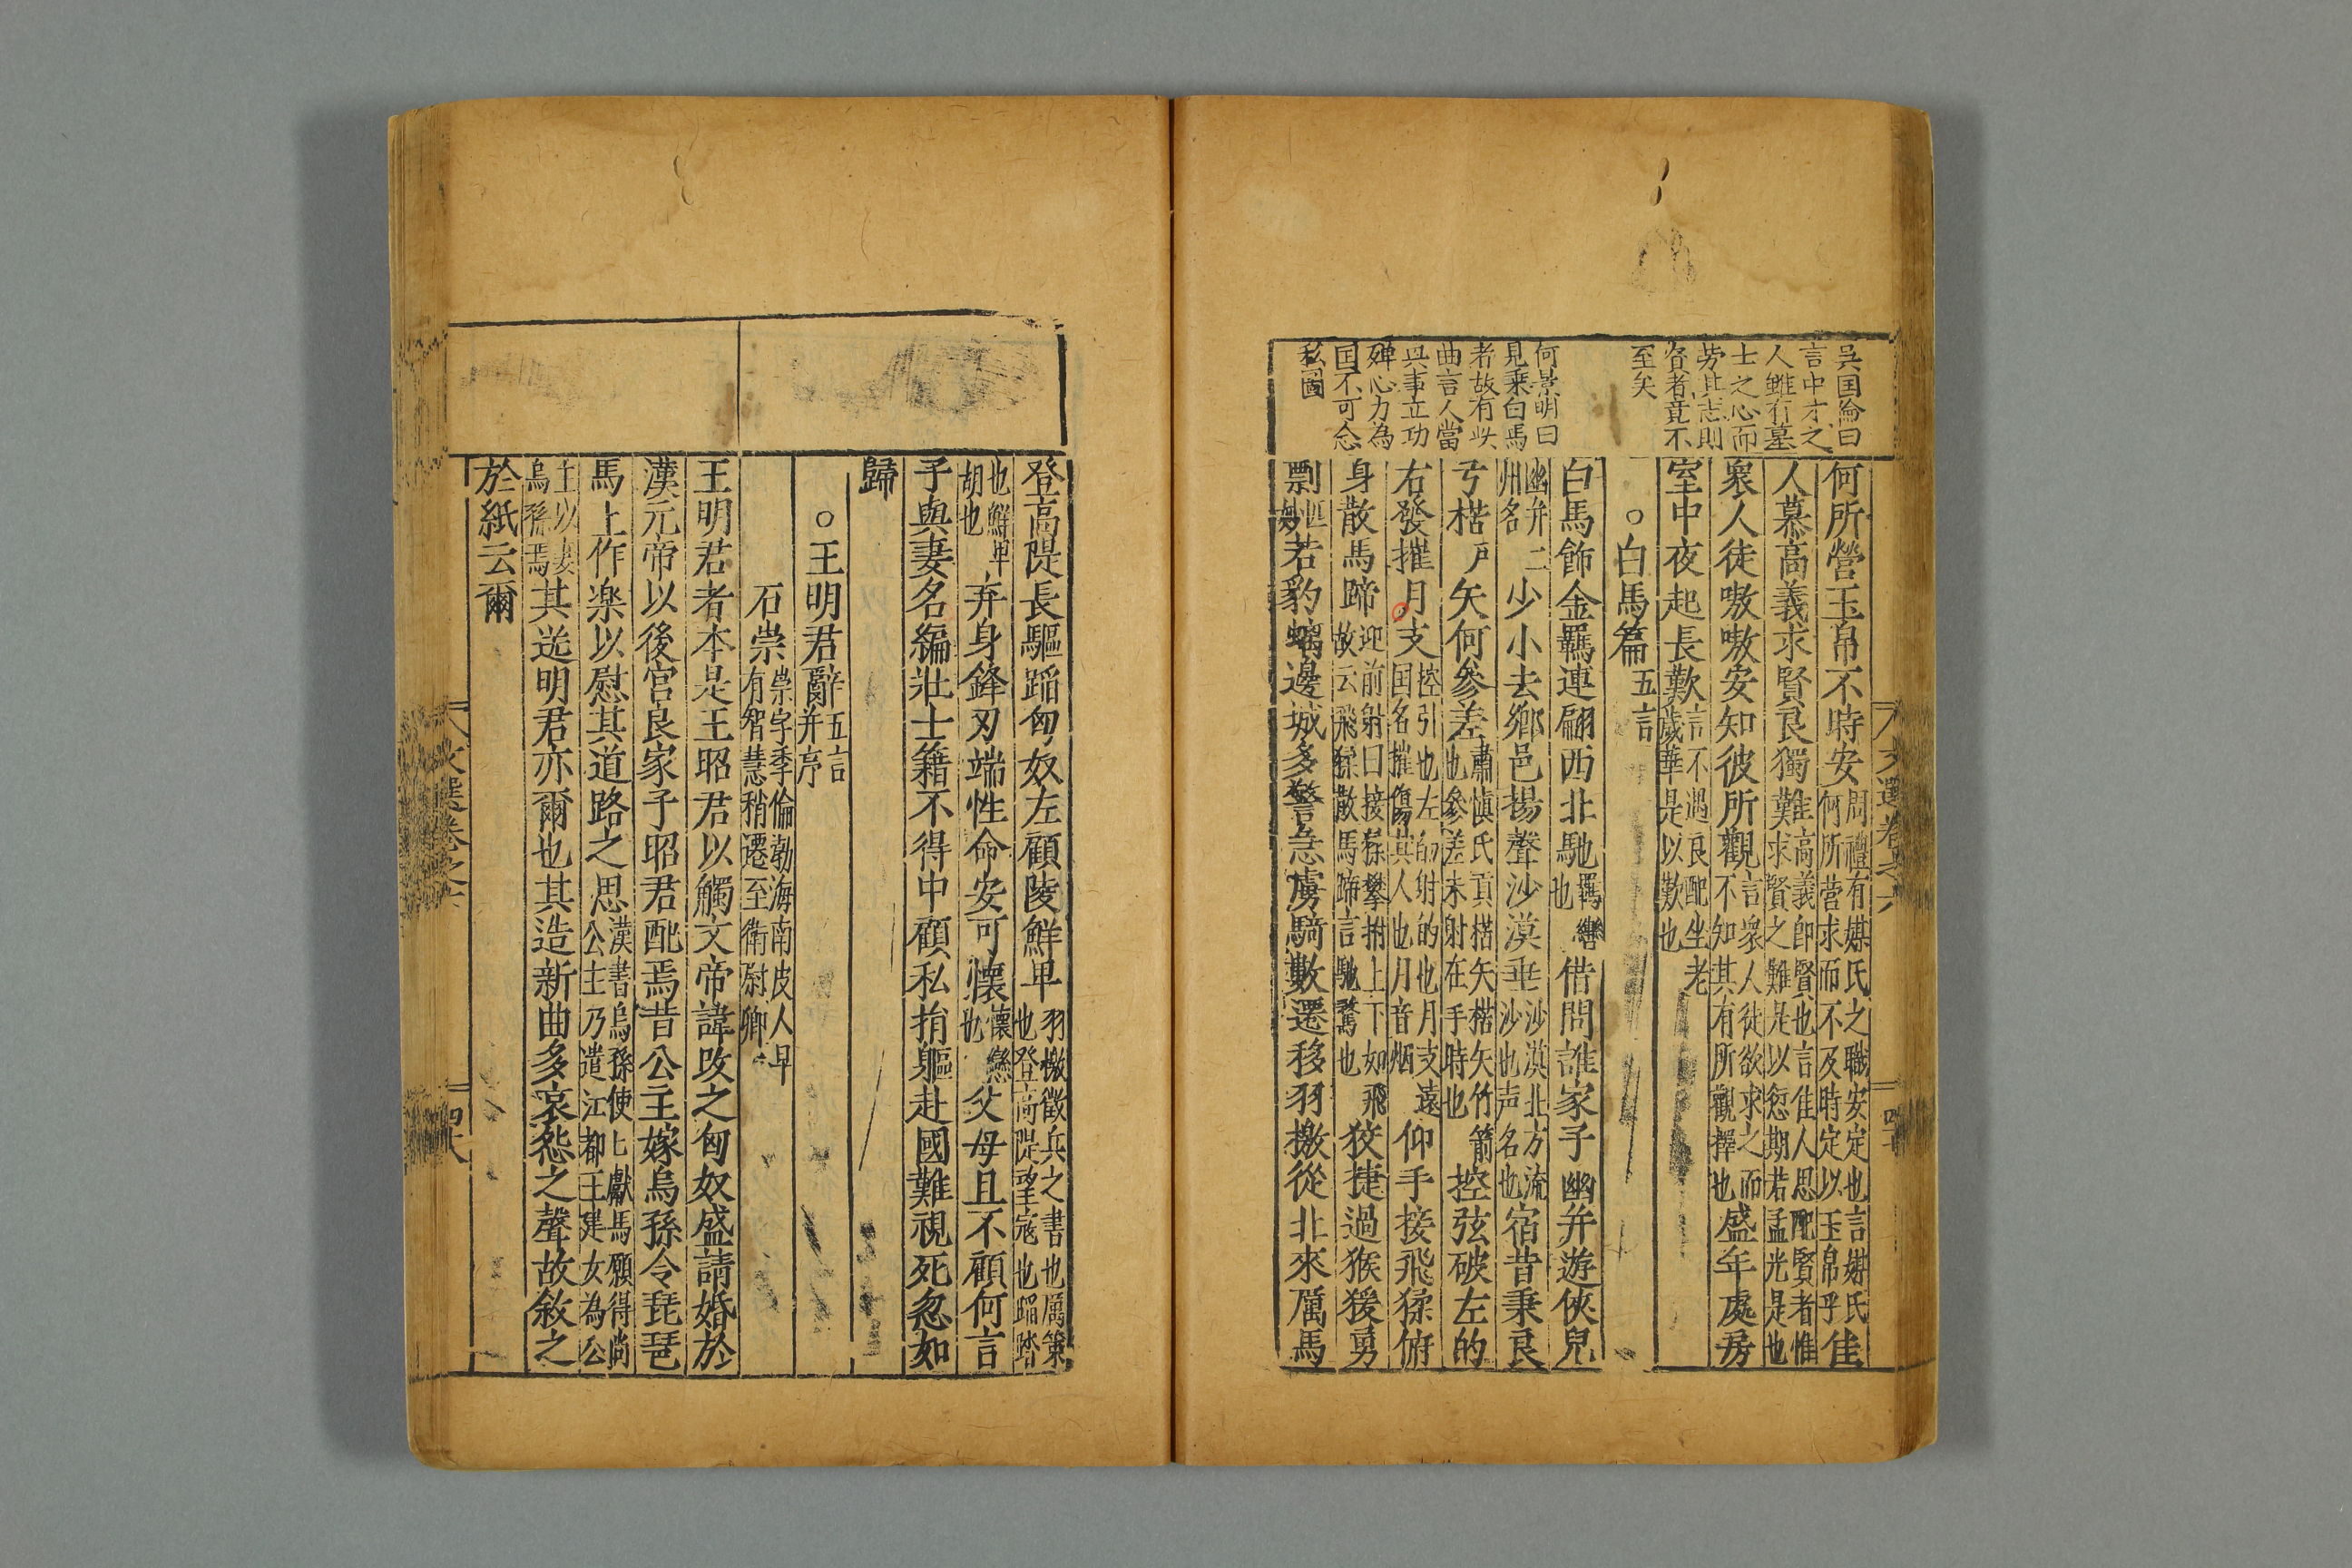 吳国倫曰
言中才之
人雖有墓
士之心而
劳其志則
賢者竟不
至矣
何景明曰
見乗白馬
者故有此
曲言人當
與事立功
殫心力為
国不可念
私圖
何所營玉帛不時安問禮有媒氏之職安定也言媒氏何所营求而不及時定以玉帛乎佳
人慕高義求賢良獨難高義卽賢也言佳人思配賢者惟求賢之難是以愆期若孟光是也
衆人徒嗷嗷安知彼所觀言衆人徒欲求之而不知其有所觀擇也盛年處房
室中夜起長歎言不遇良配坐老歲華是以歎也
○白馬篇五言
白馬飾金羈連翩西北馳羈轡也借問誰家子幽并遊俠兒
幽并二州名少小去鄉邑揚聲沙漠垂沙漠北方流沙也声名也宿昔秉良
弓楛戶矢何參差肅慎氏貢楛矢楛矢竹箭也參差未射在手時也控弦破左的
右發摧月支控引也左的射的也月支遠国名摧傷其人也月音烟仰手接飛猱俯
身散馬蹄迎前射曰接猱攀拊上下如飛故云飛猱散馬蹄言馳騖也狡捷過猴猨勇
剽若豹螭邊城多警急虜騎數遷移羽檄從北來厲馬
八文選卷之六
登高隄長驅蹈匈奴左顧陵鮮卑羽檄徵兵之書也厲策也登高隄望寇也蹈踏
也鮮卑胡也弃身鋒刃端性命安可懷懷戀也父母且不顧何言
子與妻名編壯士籍不得中顧私捐軀赴國難視死忽如
歸
○王明君辭五言并序
石崇崇字季倫勃海南皮人早有智慧稍遷至衛尉卿
王明君者本是王昭君以觸文帝諱改之匈奴盛請婚於
漢元帝以後宮良家子昭君配焉昔公主嫁烏孫令琵琶
馬上作楽以慰其道路之思漢書烏孫使匕獻馬願得尚公主乃遣江都王建女為公
主以妻烏孫焉其送明君亦爾也其造新曲多哀怨之聲故敘之
於紙云爾